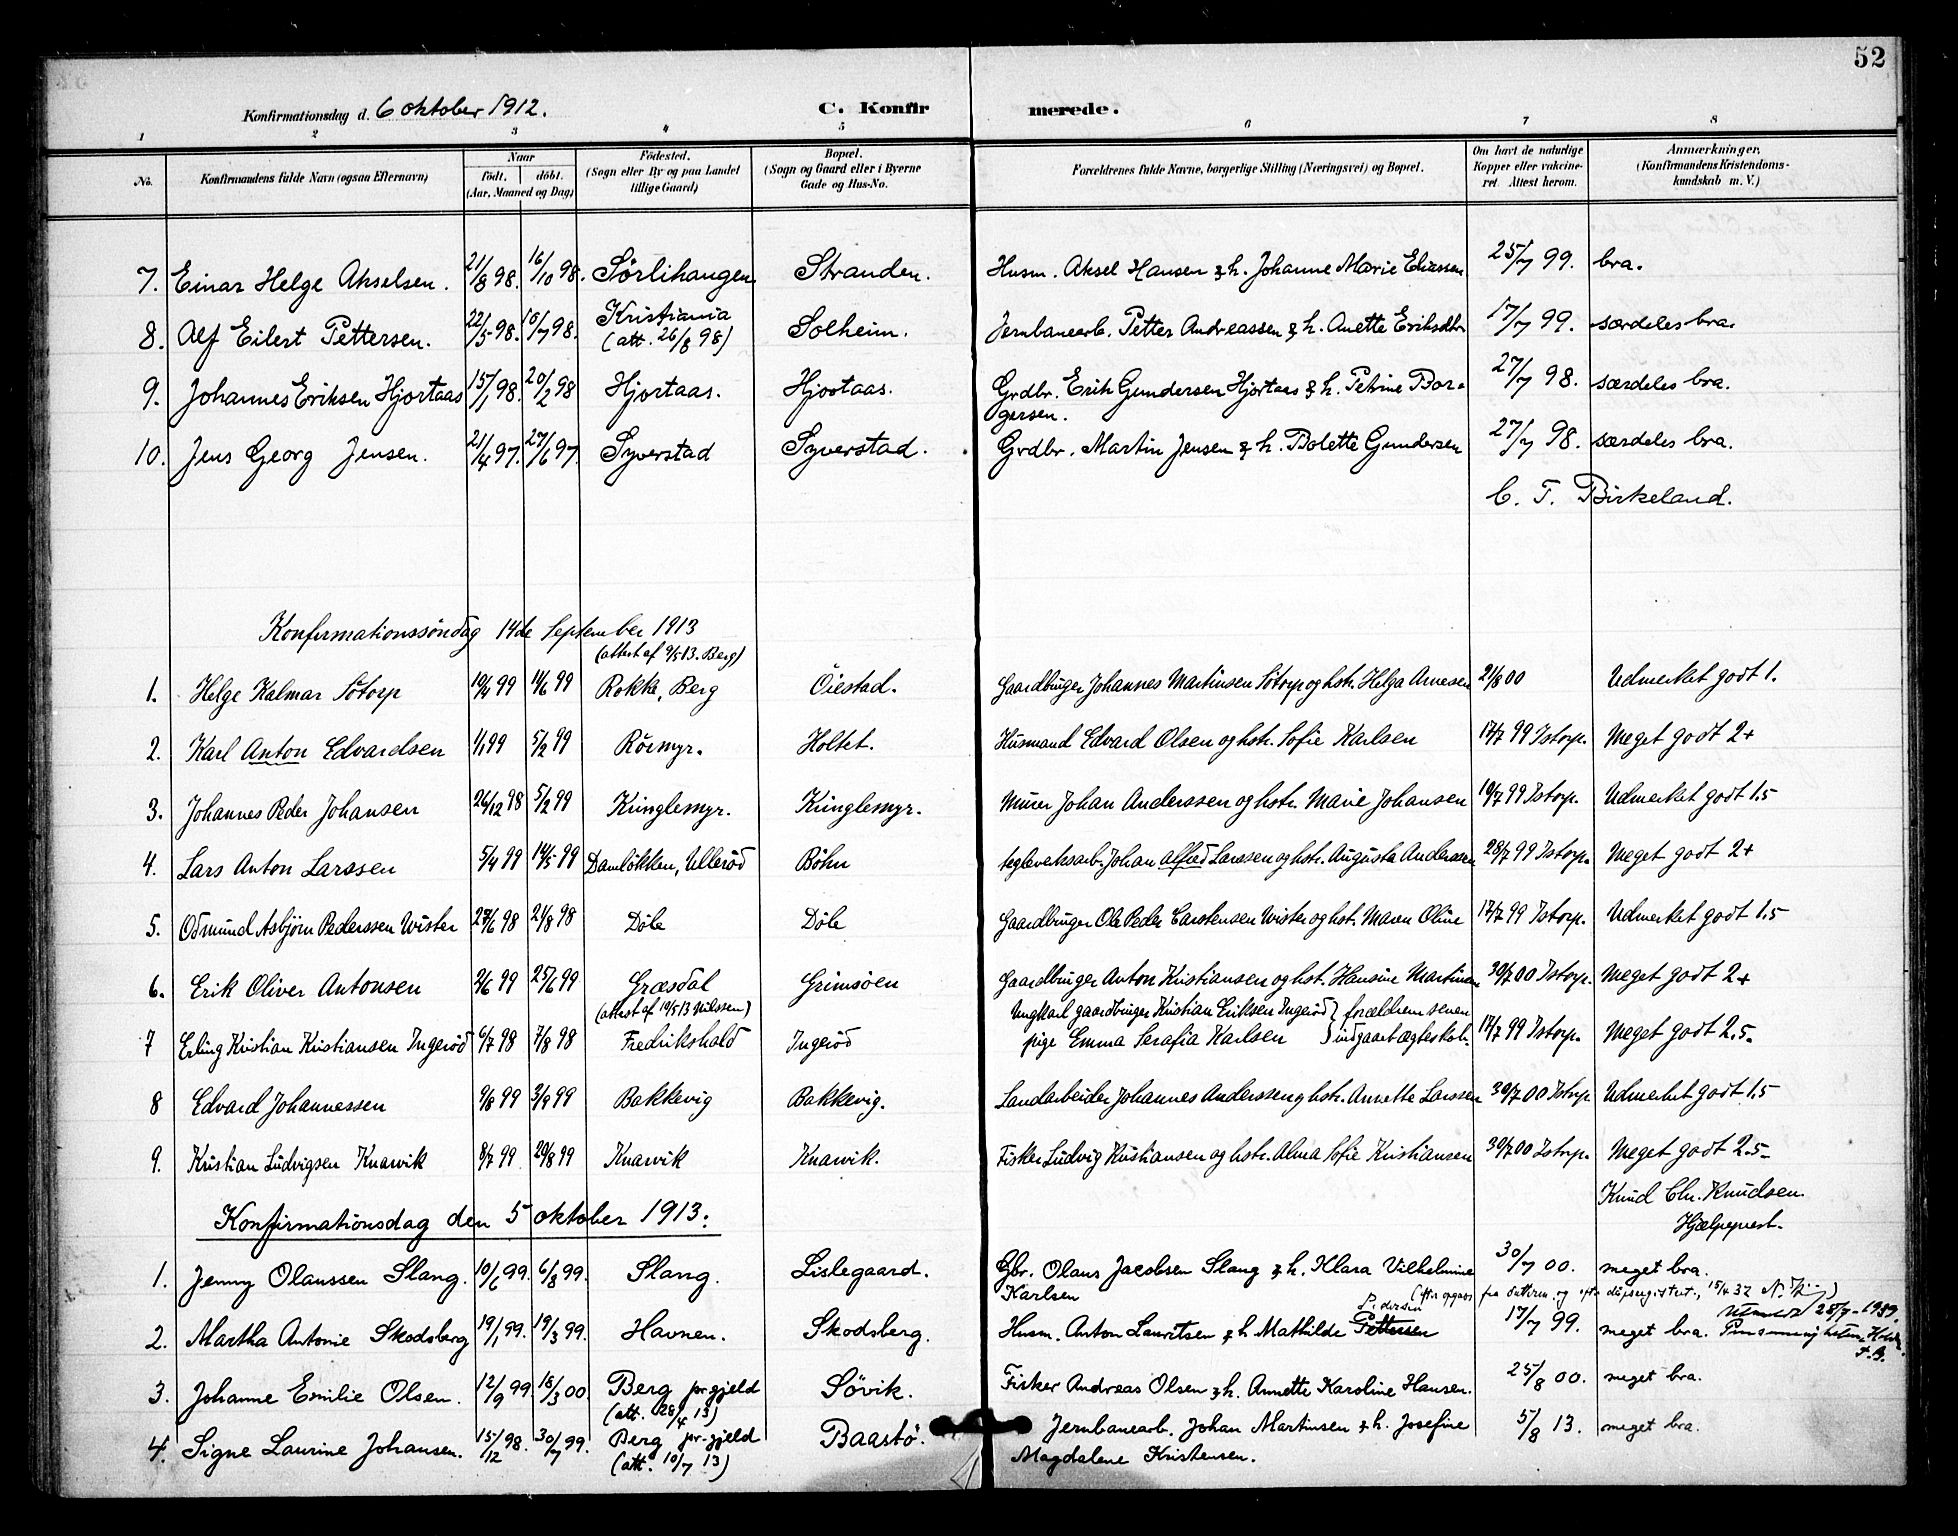 52
Konfirmationsdag d. 6 oktober 1912. C. Konfirmerede.
1 2 3 4 5 6 7 8
No. Konfirmandens fulde Navn (ogsaa Efternavn) Naar født. døbt. (Aar, Maaned og Dag) Fødested. (Sogn eller By og paa Landet tillige Gaard) Bopæl. (Sogn og Gaard eller i Byerne Gade og Hus-No. Forældrenes fulde Navne, borgerlige Stilling (Næringsvei) og Bopæl. Om havt de naturlige Kopper eller vakcineret. Attest herom. Anmærkninger, (Konfirmandens Kristendomskundskab m. V.)
7. Einar Helge Akselsen. 21/8 98. 16/10 98. Sörlihaugen Stranden. Husm. Aksel Hansen & h. Johanne Marie Eliassen 25/7 99. bra.
8. Alf Eilert Pettersen. 22/5 98. 10/7 98. Kristiania (att. 26/8 98) Solheim. Jernbanearb. Petter Andreassen & h. Anette Eriksdtr 17/7 99. særdeles bra.
9. Johannes Eriksen Hjortaas 15/1 98. 20/2 98 Hjortaas. Hjortaas. Grdbr. Erik Gundersen Hjortaas & h. Petrine Bor-
gersen. 27/7 98. særdeles bra.
10. Jens Georg Jensen. 21/4 97. 27/6 97. Syverstad Syverstad. Grdbr. Martin Jensen & h. Bolette Gundersen 27/7 98. særdeles bra.
C. F. Birkeland.
Konfirmationssöndag 14de September 1913
(attest af 9/5 13. Berg)
1. Helge Kalmar Sötorp 10/4 99 11/6 99 Rokke, Berg Öiestad. Gaardbruger Johannes Martinsen Sötorp og hstr. Helga Arnesen 21/8 00 Udmerket godt 1.
2. Karl Anton Edvardsen 1/1 99 5/2 99 Rörmyr. Holtet. Husmand Edvard Olsen og hstr. Sofie Karlsen 17/7 99 Istorp. Meget godt 2+
3. Johannes Peder Johansen 26/12 98 5/2 99 Kringlemyr. Kringlemyr. Murer Johan Anderssen og hstr. Marie Johansen 19/7 99 Istorp. Udmerket godt 1.5
4. Lars Anton Larssen 5/4 99 14/5 99 Damlökken, Ulleröd Böhn teglverksarb. Johan Alfred Larssen og hstr. Augusta Anderssen 28/7 99 Istorp. Meget godt 2+
5. Odmund Asbjörn Pederssen Wister 27/6 98 21/8 98 Döle Döle Gaardbruger Ole Peder Carstensen Wister og hst. Maren Oline 17/7 99 Istorp. Udmerket godt 1.5
6. Erik Oliver Antonsen 2/6 99 25/6 99 Græsdal Grimsöen Gaardbruger Anton Kristiansen og hst. Hansine Martinsen 30/7 00 Istorp. Meget godt 2+
(attest af 19/5 13 Nilssen) Ungkarl gaardbruger Kristian Eriksen Ingeröd } forældrene senere
7 Erling Kristian Kristiansen Ingeröd 6/7 98 7/8 98 Fredrikshald Ingeröd pige Emma Serafia Karlsen } indgaaet ægteskab. 17/7 99 Istorp. Meget godt 2.5.
8 Edvard Johannessen 9/8 99 3/9 99 Bakkevig Bakkevig. Landarbeider Johannes Anderssen og hstr. Annette Larssen 30/7 00 Istorp Udmerket godt 1.5
9. Kristian Ludvigsen Knarvik 8/7 99 20/8 99 Knarvik Knarvik. Fisker Ludvig Kristiansen og hstr. Alma Sofie Kristiansen 30/7 00 Istorp. Meget godt 2.5-
Knud Chr. Knudsen.
Hjælpeprest.
Konfirmationsdag den 5 oktober 1913.
1. Jenny Olaussen Slang. 10/6 99. 6/8 99. Slang. Lislegaard. Gbr. Olaus Jacobsen Slang & h. Klara Vilhelmine
Karlsen 30/7 00. meget bra.
(efter opgave fra datteren og efter döpsregistret, 15/4 32
2. Martha Antonie Skodsberg 19/1 99. 19/3 99. Havnen. Skodsberg. Husm. Anton Lauritsen & h Mathilde Pettersen Pedersen 17/7 99. meget bra. 28/7-1939.
3. Johanne Emilie Olsen. 12/9 99. 18/3 00. Berg pr.gjeld (att. 28/4 13) Sövik. Fisker Andreas Olsen & h. Annette Karoline Hansen. 25/8 00. meget bra.
4. Signe Laurine Johansen. 15/12 98. 30/7 99. Berg pr-gjeld (att. 10/7 13) Baastö. Jernbanearb. Johan Martinsen & h. Josefine
Magdalene Kristensen. 5/8 13. meget bra.